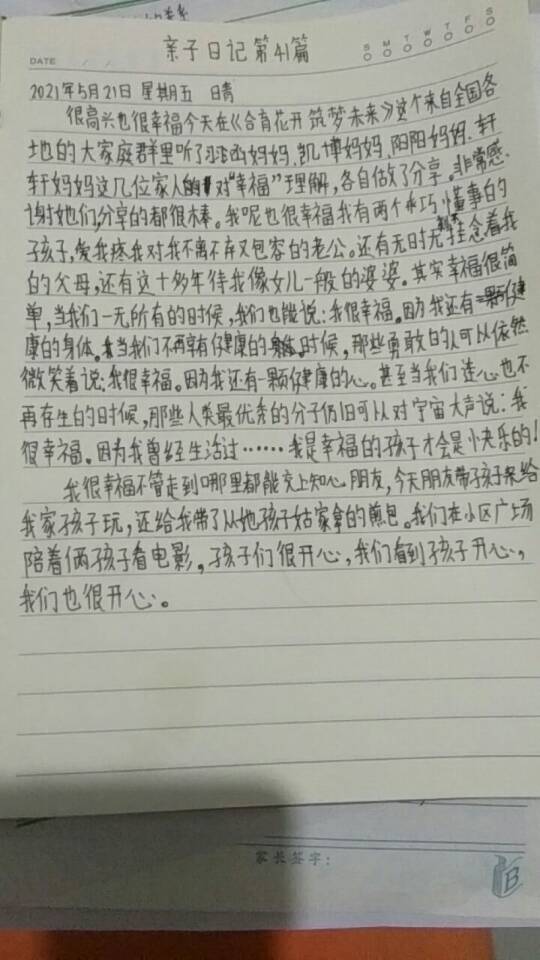 亲子日记第41篇
DATE
S M T W T F S
2021年5月21日 星期五 晴
很高兴也很幸福今天在《合育花开 筑梦未来》这个来自全国各
地的大家庭群里听了涵妈妈、凯博妈妈、阳阳妈妈、轩
轩妈妈这几位家人的对"幸福"理解,各自做了分享。非常感
谢她们,分享的都很棒。我呢也很幸福我有两个乖巧懂事的
孩子,爱我疼我对我不离不弃又包容的老公。还有无时无刻不挂念着我
的父母,还有这十多年待我像女儿一般的婆婆。其实幸福很简
单,当我们一无所有的时候,我们也能说:我很幸福。因为我还有一颗健
康的身体。当我们不再享有健康的身体时候,那些勇敢的人可以依然
微笑着说:我很幸福。因为我还有一颗健康的心。甚至当我们连心也不
再存生的时候,那些人类最优秀的分子仍旧可以对宇宙大声说:我
很幸福。因为我曾经生活过……我是幸福的孩子才会是快乐的!
我很幸福不管走到哪里都能交上知心朋友,今天朋友带孩子来给
我家孩子玩,还给我带了从她孩子姑家拿的煎包。我们在小区广场
陪着俩孩子看电影,孩子们很开心,我们看到孩子开心,
我们也很开心。
家长签字:
B